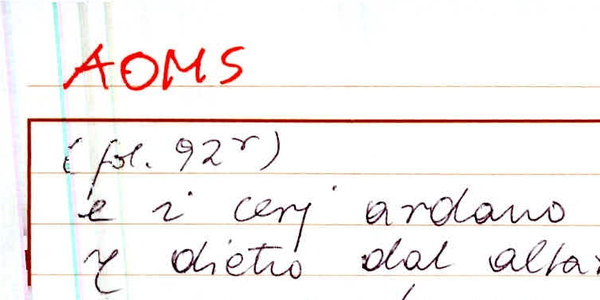 AOMS
(fol. 92r)
e i cerj ardano
dietro dal altar